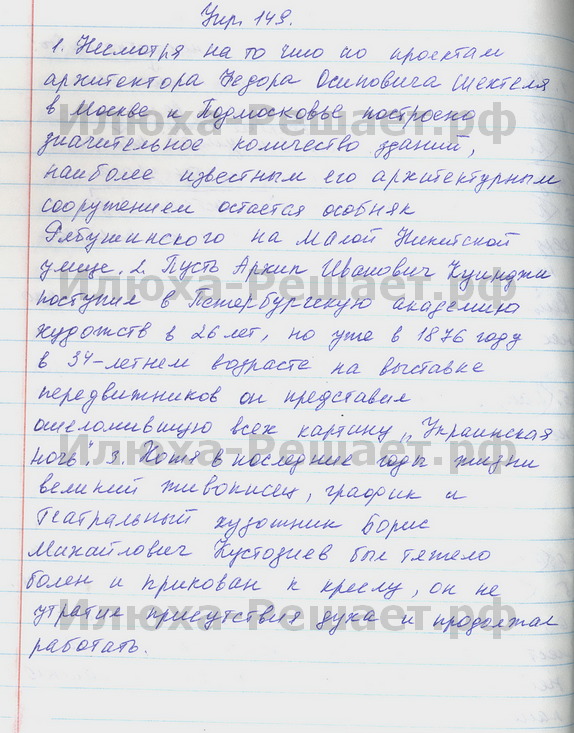 Упр. 149.
1. Несмотря на то что по проектам
архитектора Федора Осиповича Шехтеля
в Москве и Подмосковье построено
значительное количество зданий,
наиболее известным его архитектурным
сооружением остается особняк
Рябушинского на Малой Никитской
улице. 2. Пусть Архип Иванович Куинджи
поступил в Петербургскую академию
художеств в 26 лет, но уже в 1876 году
в 34-летнем возрасте на выставке
передвижников он представил
ошеломившую всех картину „Украинская
ночь". 3. Хотя в последние годы жизни
великий живописец, график и
театральный художник Борис
Михайлович Кустодиев был тяжело
болен и прикован к креслу, он не
утратил присутствия духа и продолжал
работать.
Илюха-Решает.рф
Илюха-Решает.рф
Илюха-Решает.рф
Илюха-Решает.рф